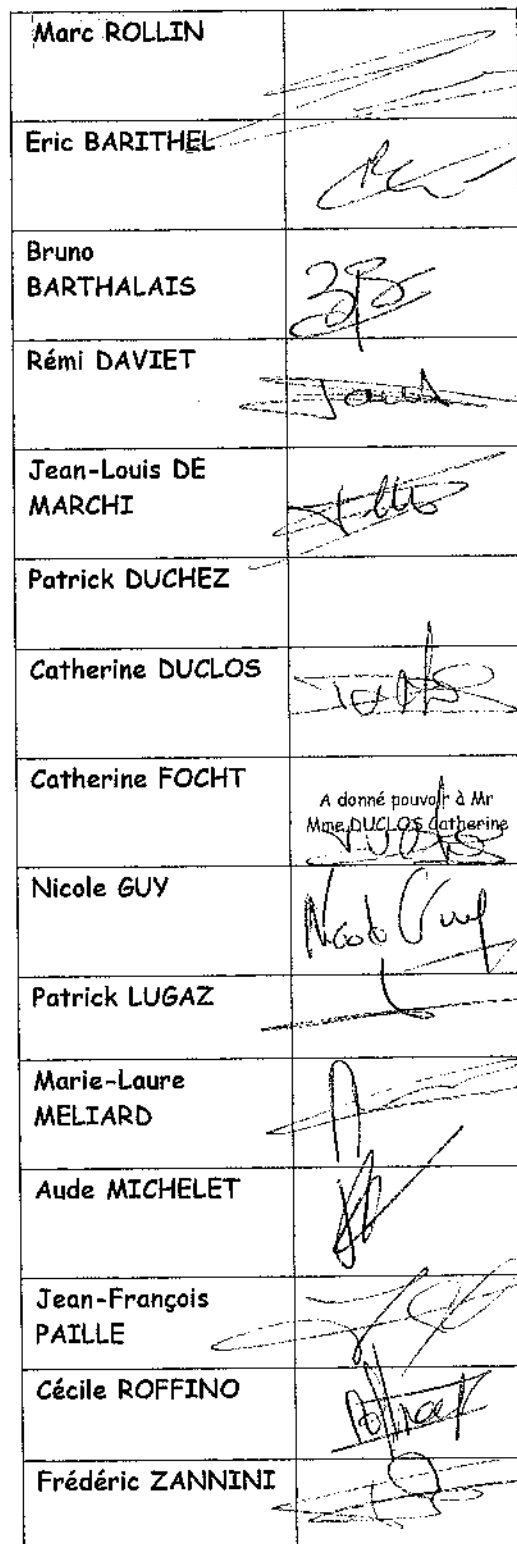 Marc ROLLIN
Eric BARITHEL
Bruno
BARTHALAIS
Rémi DAVIET
Jean-Louis DE
MARCHI
Patrick DUCHEZ
Catherine DUCLOS
Catherine FOCHT
A donné pouvoir à Mr
Mme DUCLOS Catherine
Nicole GUY
Nicole Guy
Patrick LUGAZ
Marie-Laure
MELIARD
Aude MICHELET
Jean-François
PAILLE
Cécile ROFFINO
Frédéric ZANNINI